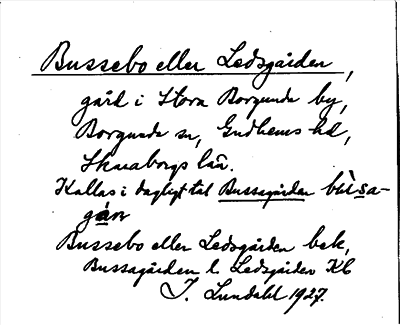 Bussebo eller Ledsgården,
gård i Stora Borgunda by,
Borgunda sn, Gudhems hd,
Skaraborgs län.
Kallas i dagligt tal Bussagården bùsa-
gán
Bussebo eller Ledsgården bek,
Bussagården l. Ledsgården Kb
J. Lundahl 1927.